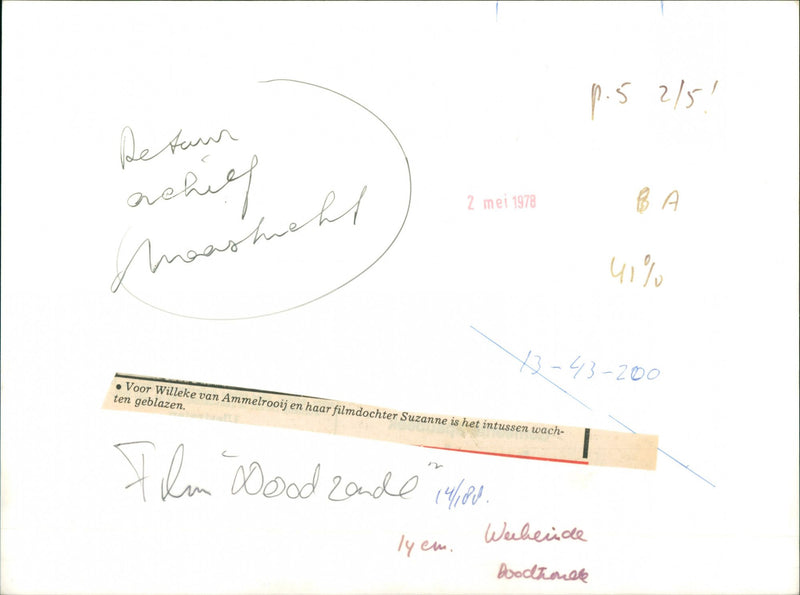 p. 5 2/5!
Retour
archief
Maastricht
2 mei 1978
B A
41%
13-43-200
• Voor Willeke van Ammelrooij en haar filmdochter Suzanne is het intussen wach-
ten geblazen.
Film "Doodzonde"
14 cm. Weekeinde
Doodzonde